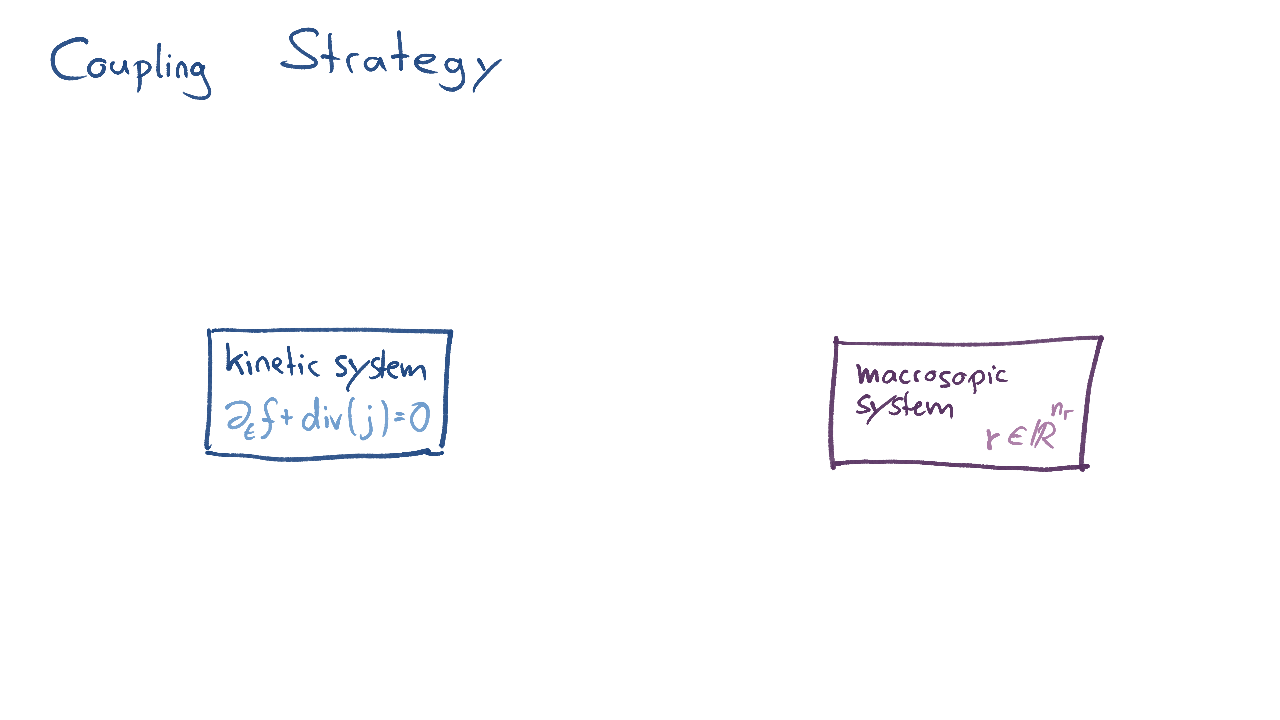 Coupling Strategy
kinetic system
∂ₜf + div(j) = 0
macrosopic
system
r ∈ ℝ^{n_r}